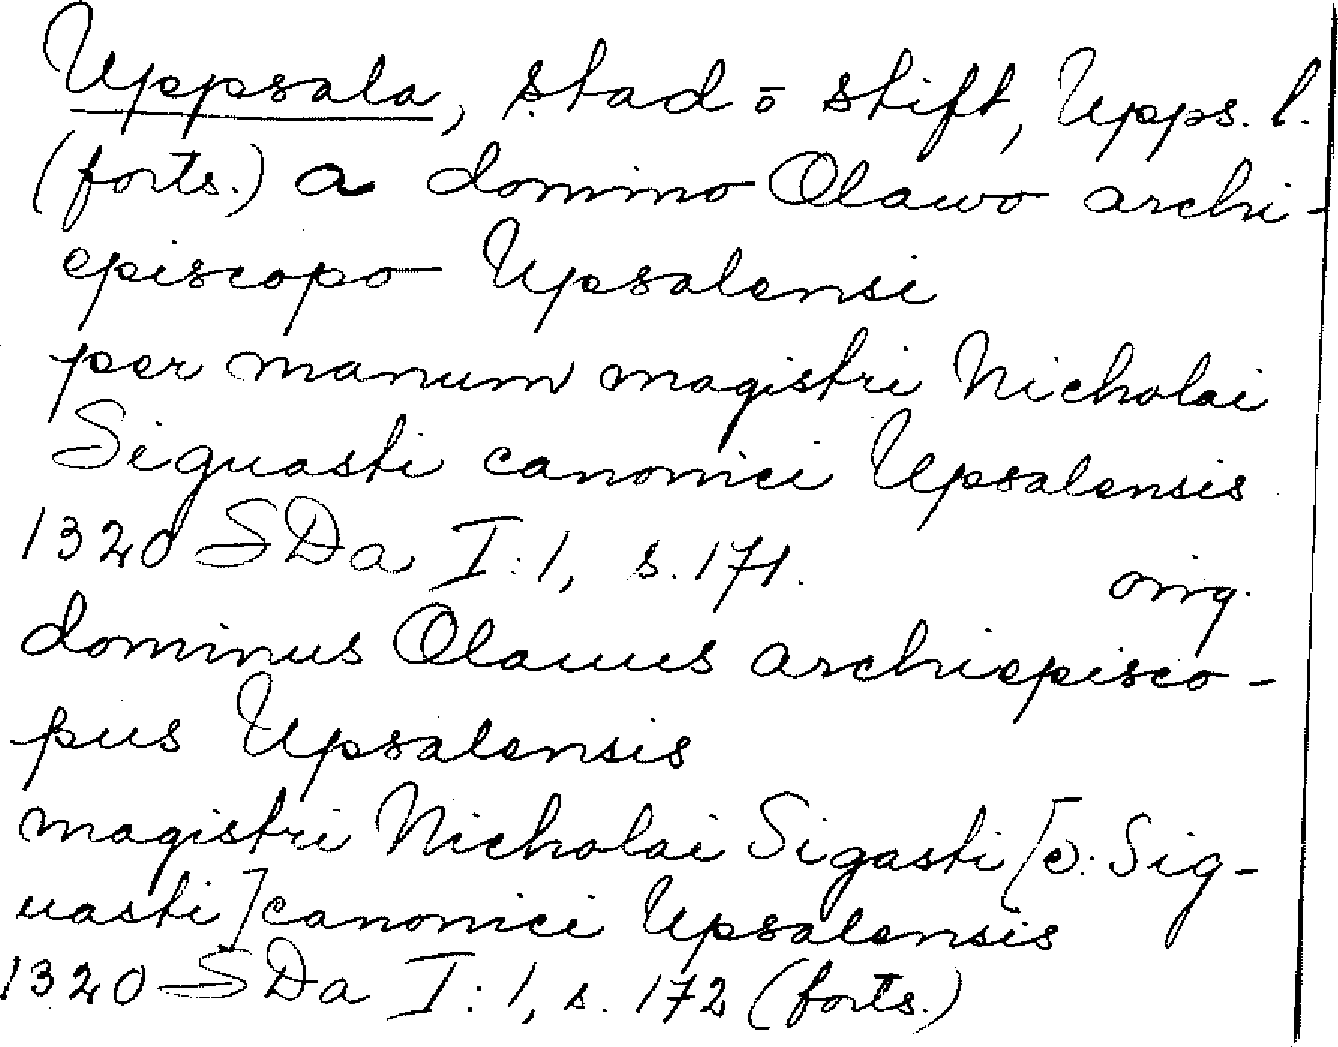 Uppsala, stad o stift, Upps. l.
(forts.) a domino Olawo archi-
episcopo Upsalensi
per manum magistri Nicholai
Siguasti canonici Upsalensis
1320 SDa I:1, s. 171. orig.
dominus Olauus archiepisco-
pus Upsalensis
magistri Nicholai Sigasti [ɔ: Sig-
uasti] canonici Upsalensis
1320 SDa I:1, s. 172 (forts.)